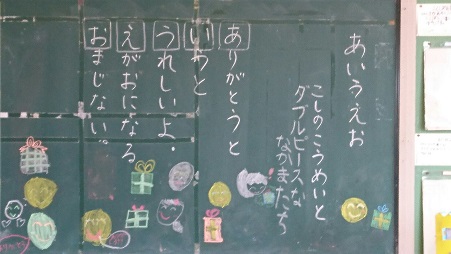 あいうえお
こしのこうめいと
ダブルピースな
なかまたち
ありがとうと
いわと
うれしいよ・
えがおになる
おまじない。